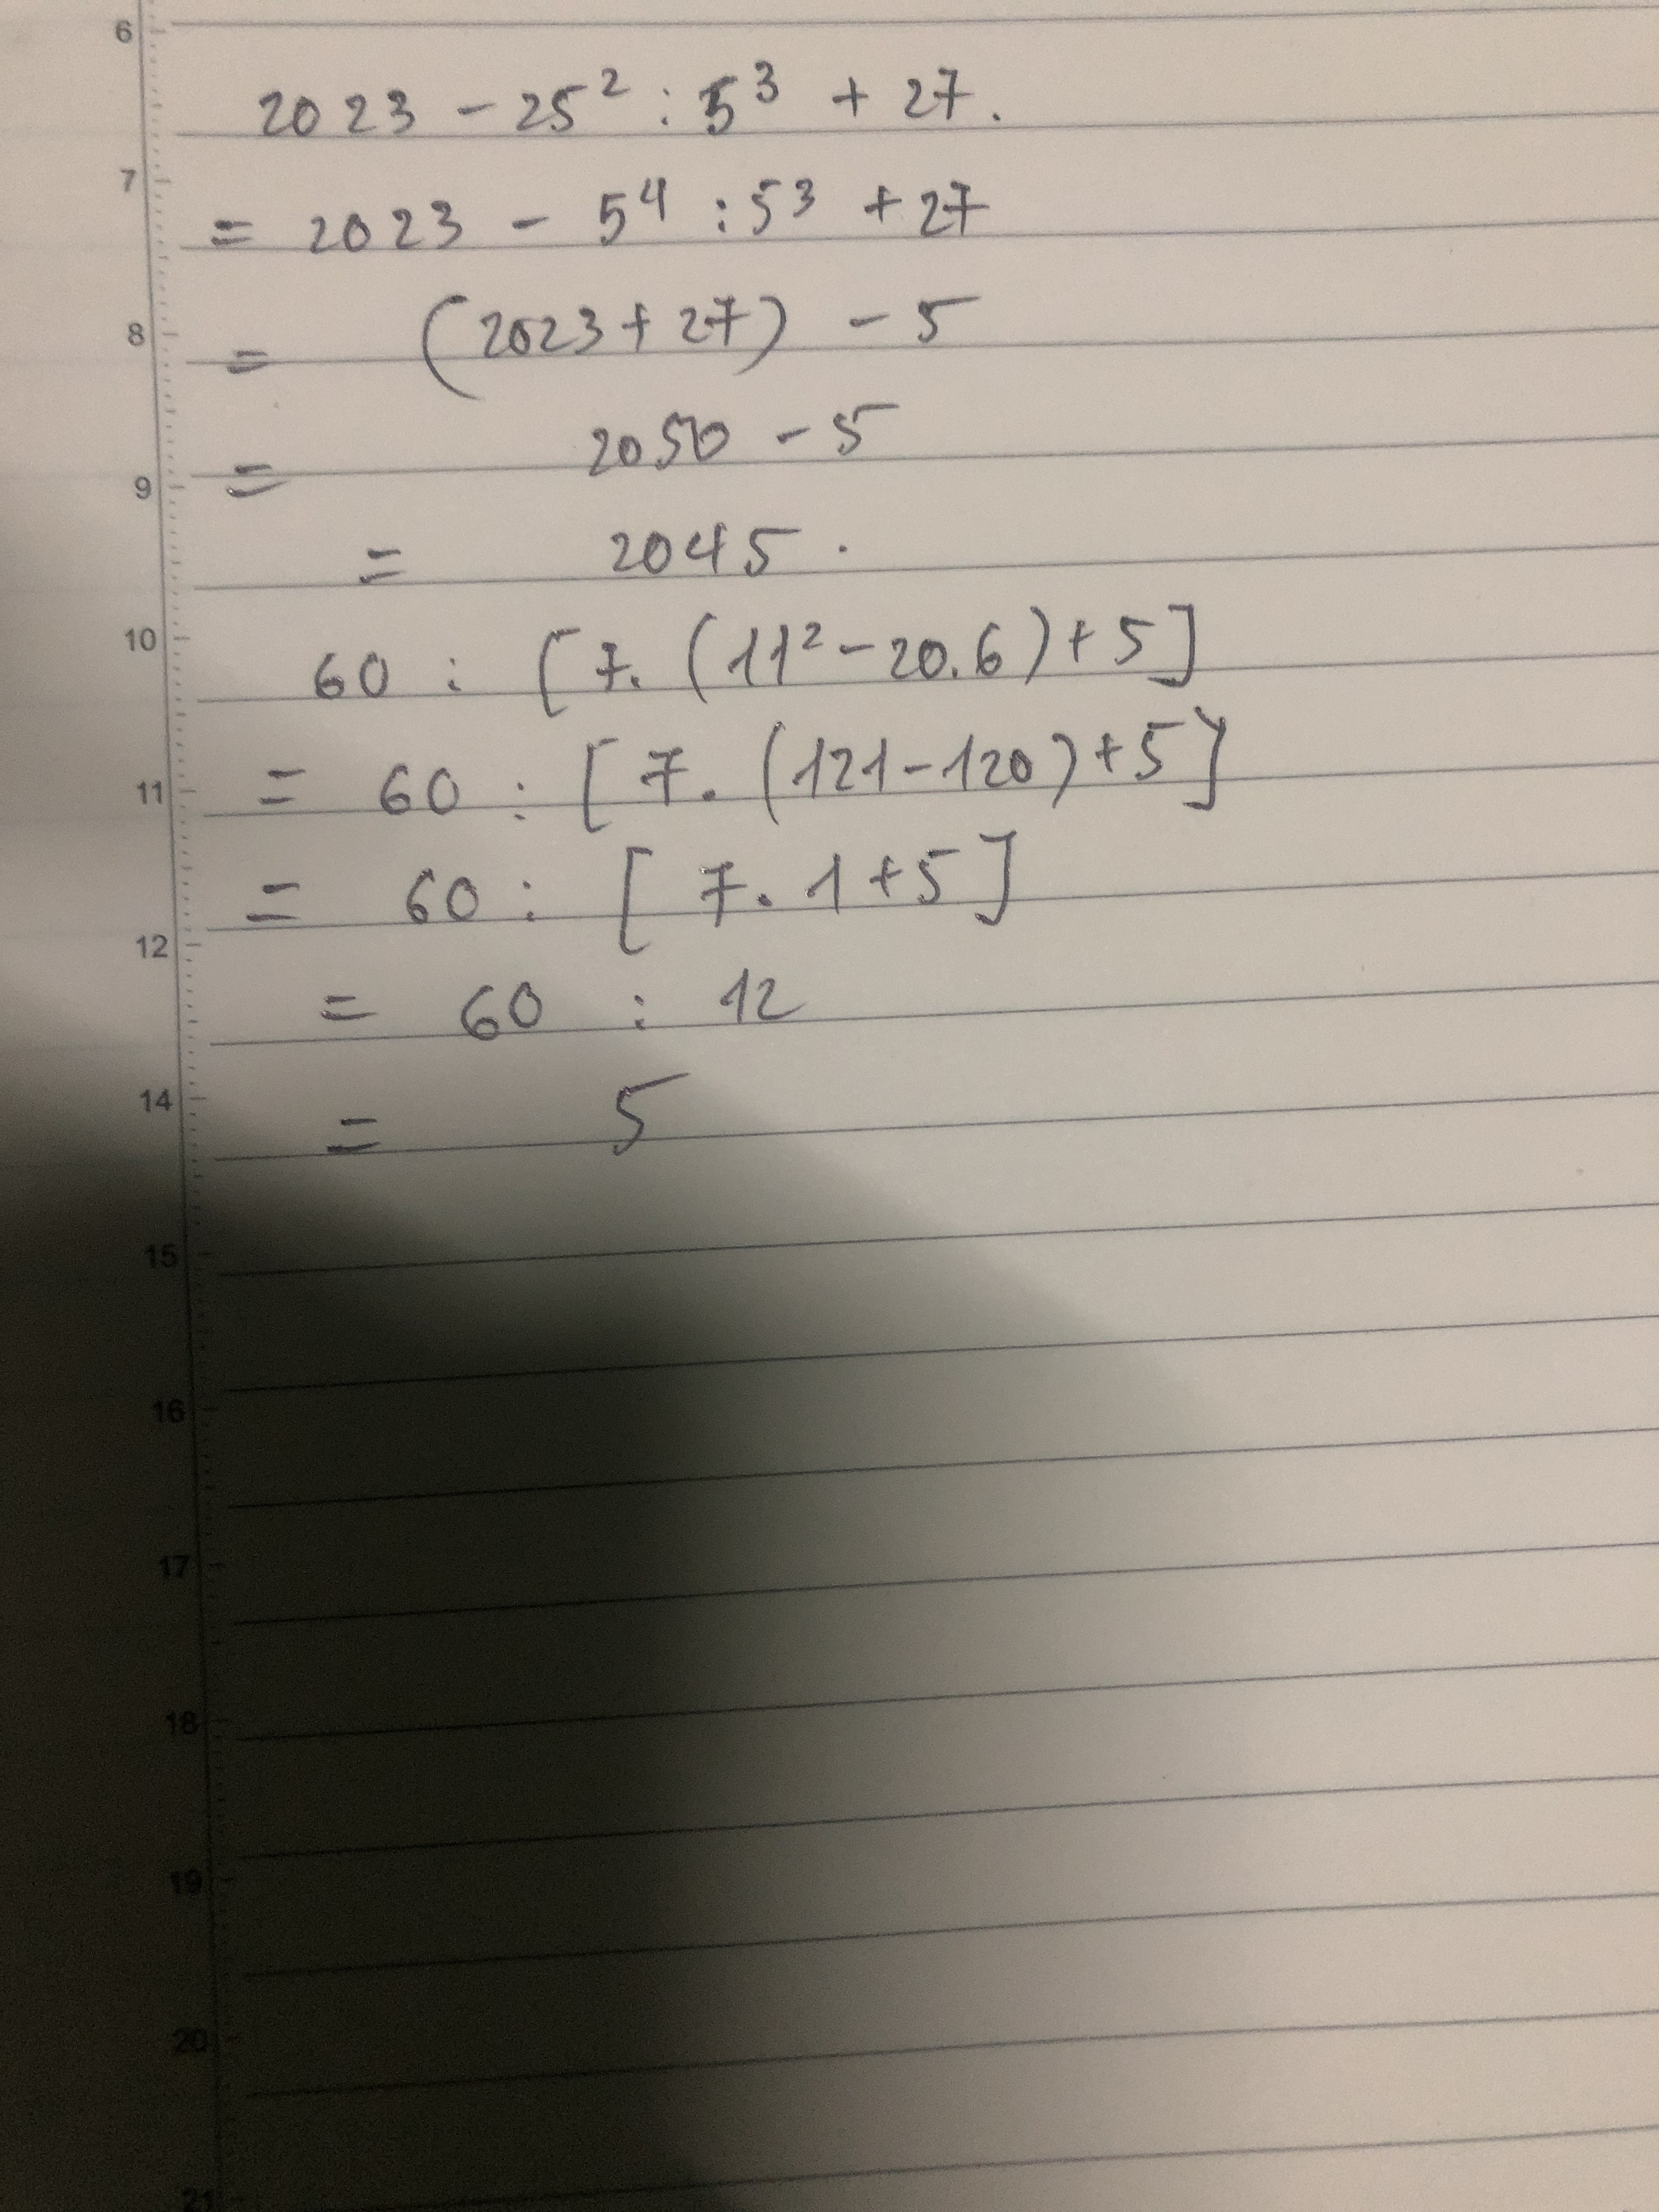 6
2023 - 25² : 5³ + 27.
7
= 2023 - 5⁴ : 5³ + 27
8
= (2023 + 27) - 5
= 2050 - 5
9
= 2045.
10
60 : [7. (11² - 20.6) + 5]
11
= 60 : [7. (121 - 120) + 5]
= 60 : [7. 1 + 5]
12
= 60 : 12
14
= 5
15
16
17
18
19
20
21